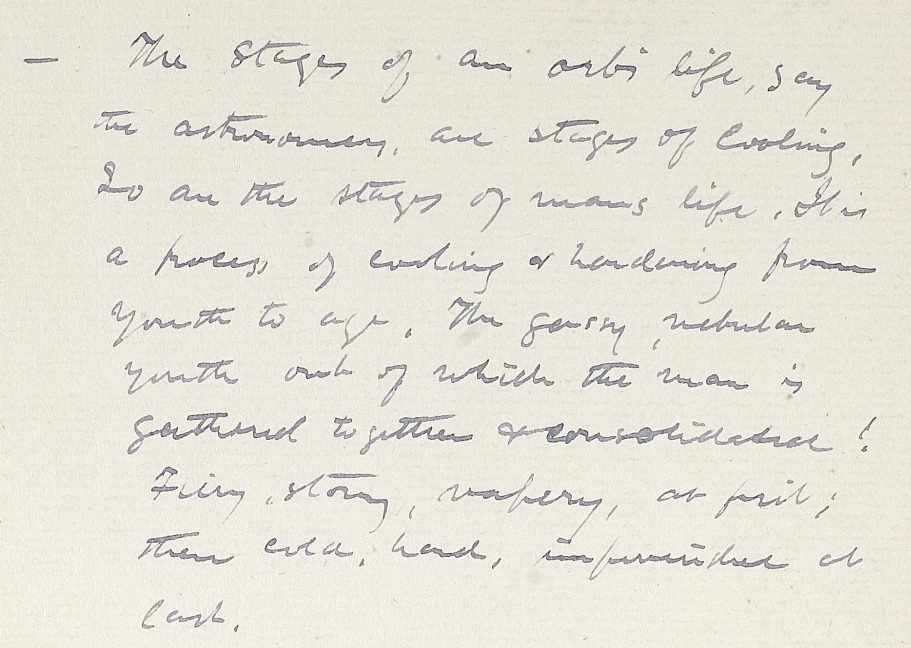 — The stages of an orb's life, say
the astronomers, are stages of cooling,
So are the stages of mans life. It is
a process of cooling & hardening from
youth to age. The gassy, nebular
youth out of which the man is
gathered together & consolidated!
Fiery, stormy, vapery, at first;
then cold, hard, impoverished at
last.